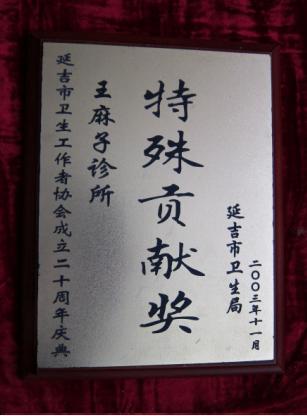 延吉市卫生工作者协会成立二十周年庆典
王麻子诊所
特殊贡献奖
延吉市卫生局
二〇〇三年十一月